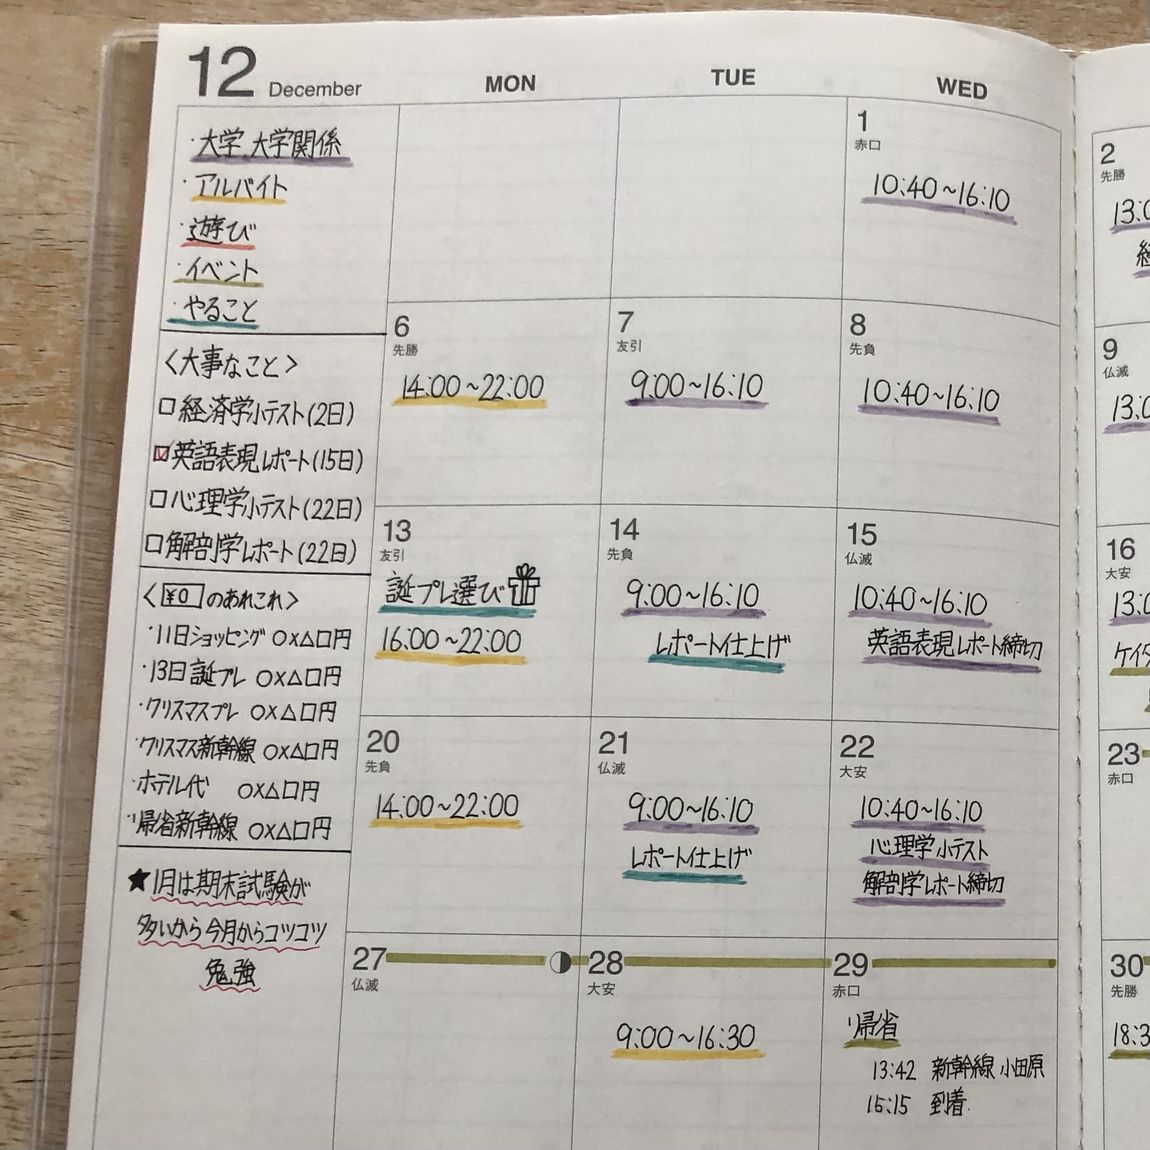 12 December
MON
TUE
WED
・大学、大学関係
・アルバイト
・遊び
・イベント
・やること
<大事なこと>
□経済学小テスト(2日)
☑英語表現レポート(15日)
□心理学小テスト(22日)
□解剖学レポート(22日)
<¥0のあれこれ>
・11日ショッピング ○×△□円
・13日誕プレ ○×△□円
・クリスマスプレ ○×△□円
・クリスマス新幹線 ○×△□円
・ホテル代 ○×△□円
・帰省新幹線 ○×△□円
★1月は期末試験が
多いから今月からコツコツ
勉強
1
赤口
10:40~16:10
2
先勝
13:0
6
先勝
14:00~22:00
7
友引
9:00~16:10
8
先負
10:40~16:10
9
仏滅
13:0
13
友引
誕プレ選び
16:00~22:00
14
先負
9:00~16:10
レポート仕上げ
15
仏滅
10:40~16:10
英語表現レポート締切
16
大安
13:0
ケイタ
20
先負
14:00~22:00
21
仏滅
9:00~16:10
レポート仕上げ
22
大安
10:40~16:10
心理学小テスト
解剖学レポート締切
23
赤口
27
仏滅
28
大安
9:00~16:30
29
赤口
帰省
13:42 新幹線 小田原
15:15 到着
30
先勝
18:3